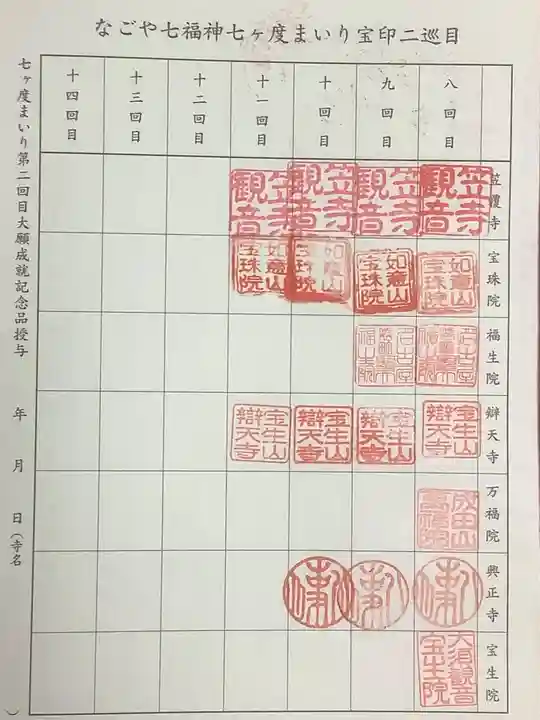 なごや七福神七ヶ度まいり宝印二巡目
八回目
九回目
十回目
十一回目
十二回目
十三回目
十四回目
笠覆寺
笠寺観音
笠寺観音
笠寺観音
笠寺観音
宝珠院
如意山宝珠院
如意山宝珠院
如意山宝珠院
如意山宝珠院
福生院
辯天寺
宝生山辯天寺
宝生山辯天寺
宝生山辯天寺
宝生山辯天寺
万福院
成田山萬福院
興正寺
宝生院
大須観音宝生院
七ヶ度まいり第二回目大願成就記念品授与　年　月　日(寺名　)